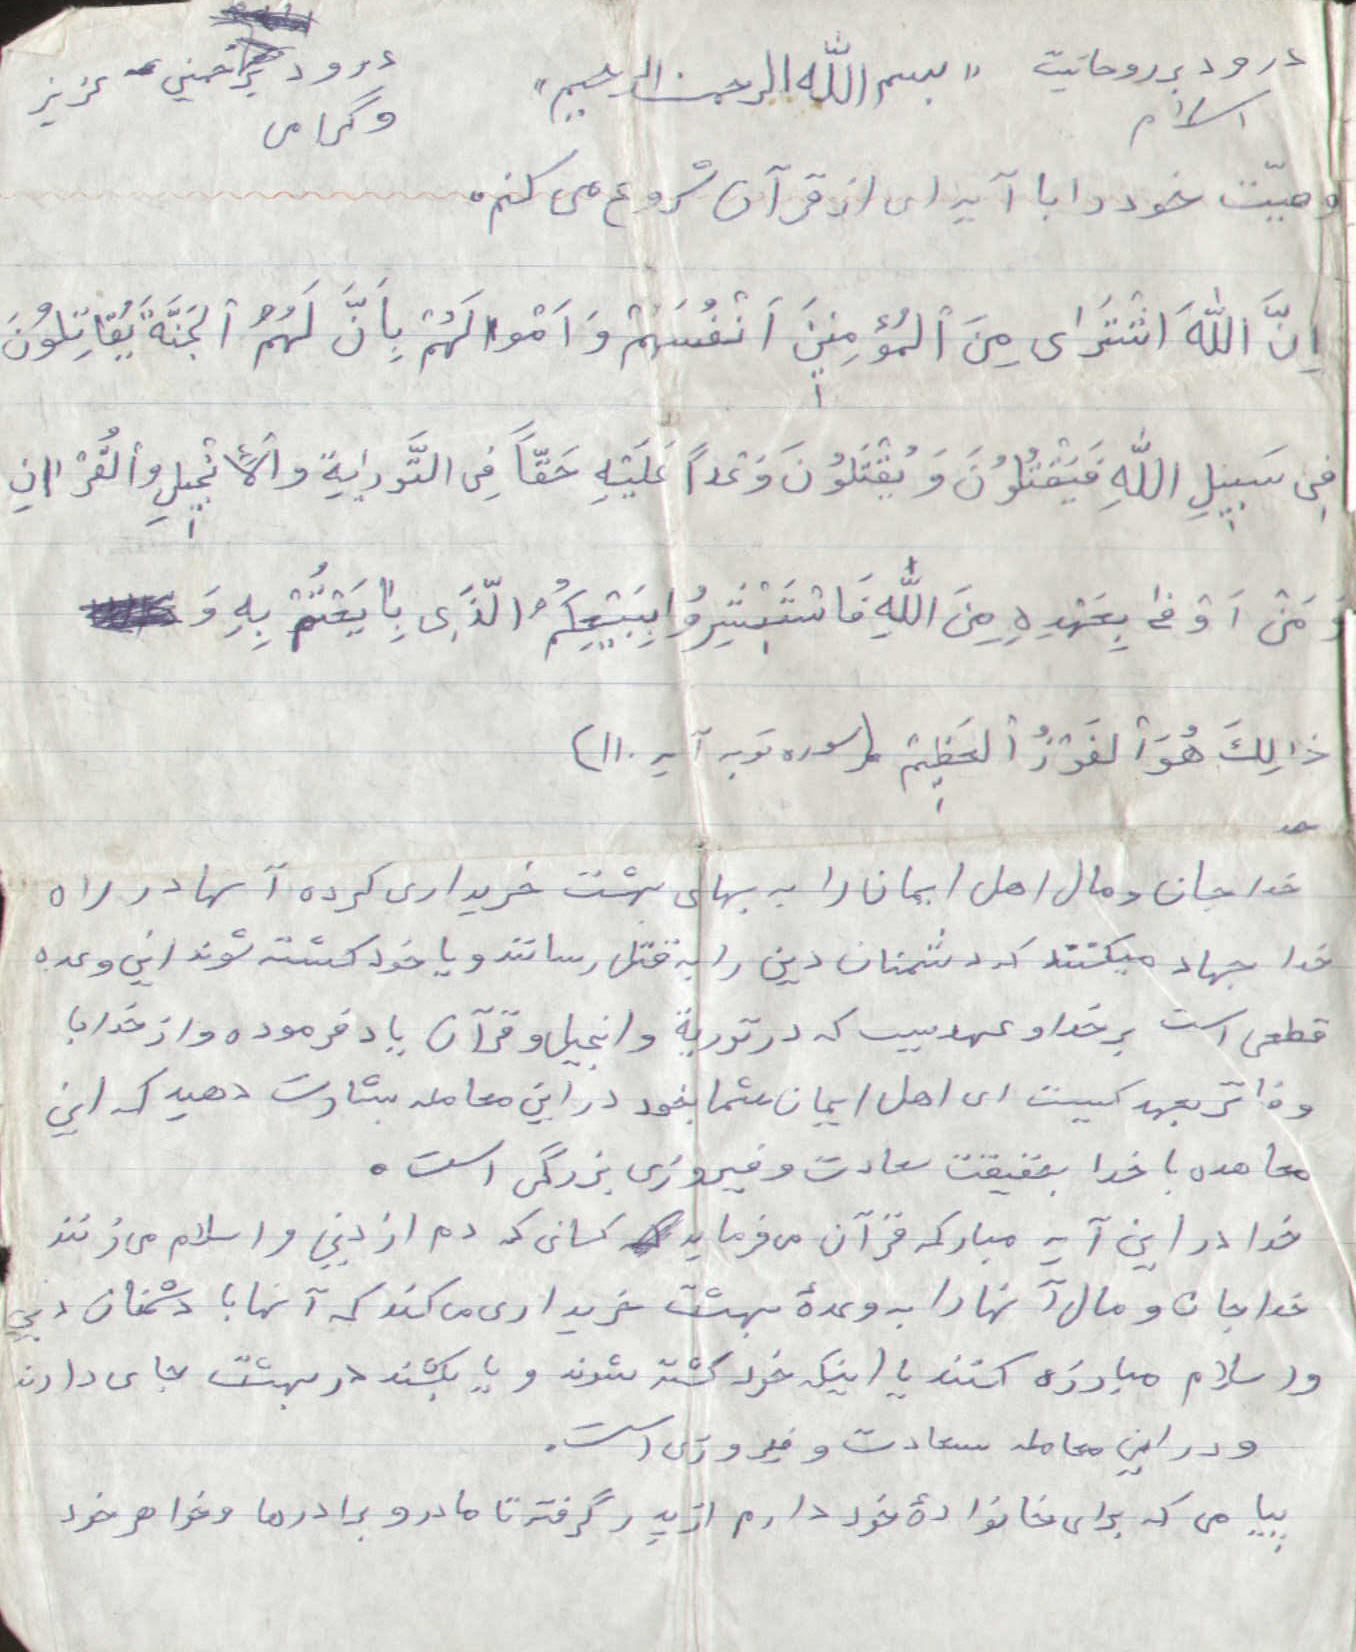 درود بر روحانیت اسلام
"بسم الله الرحمن الرحیم"
درود بر خمینی عزیز و گرامی
وصیّت خود را با آیه ای از قرآن شروع می کنم.
اِنَّ اللّهَ اشْتَرَای مِنَ الْمُؤْمِنینَ اَنْفُسَهُمْ وَ اَمْوالَهُمْ بِاَنَّ لَهُمُ الْجَنَّةَ یُقاتِلُونَ
فِی سَبیلِ اللّهِ فَیَقْتُلُونَ وَ یُقْتَلُونَ وَعْداً عَلَیْهِ حَقّاً فِی التَّورایةِ وَالْاِنْجیلِ وَالْقُرْانِ
وَ مَنْ اَوْفی بِعَهْدِهِ مِنَ اللّهِ فَاسْتَبْشِرُوا بِبَیْعِکُمُ الَّذَی بایَعْتُمْ بِهِ وَ
ذالِکَ هُوَ الْفَوْزُ الْعَظیمْ (سوره توبه آیه ۱۱۰)
خدا جان و مال اهل ایمان را به بهای بهشت خریداری کرده آنها در راه
خدا جهاد میکنند که دشمنان دین را به قتل رسانند و یا خود کشته شوند این وعده
قطعی است بر خدا و عهدیست که در توریة و انجیل و قرآن یاد فرموده و از خدا با
وفاتر بعهد کیست ای اهل ایمان شما بخود در این معامله بشارت دهید که این
معاهده با خدا بحقیقت سعادت و فیروزی بزرگی است.
خدا در این آیه مبارکه قرآن می فرماید کسانی که دم از دین و اسلام می زنند
خدا جان و مال آنها را به وعدۀ بهشت خریداری می کند که آنها با دشمنان دین
و اسلام مبارزه کنند یا اینکه خود کشته شوند و یا بکشند در بهشت جای دارند
و در این معامله سعادت و فیروزی است.
پیامی که برای خانوادۀ خود دارم از پدر گرفته تا مادر و برادرها و خواهر خود